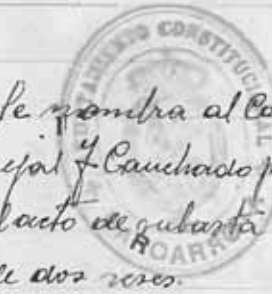 CONSTITUCIONAL
Se nombra al Co
ejal F Canchado p
l acto de subasta
de dos reses.